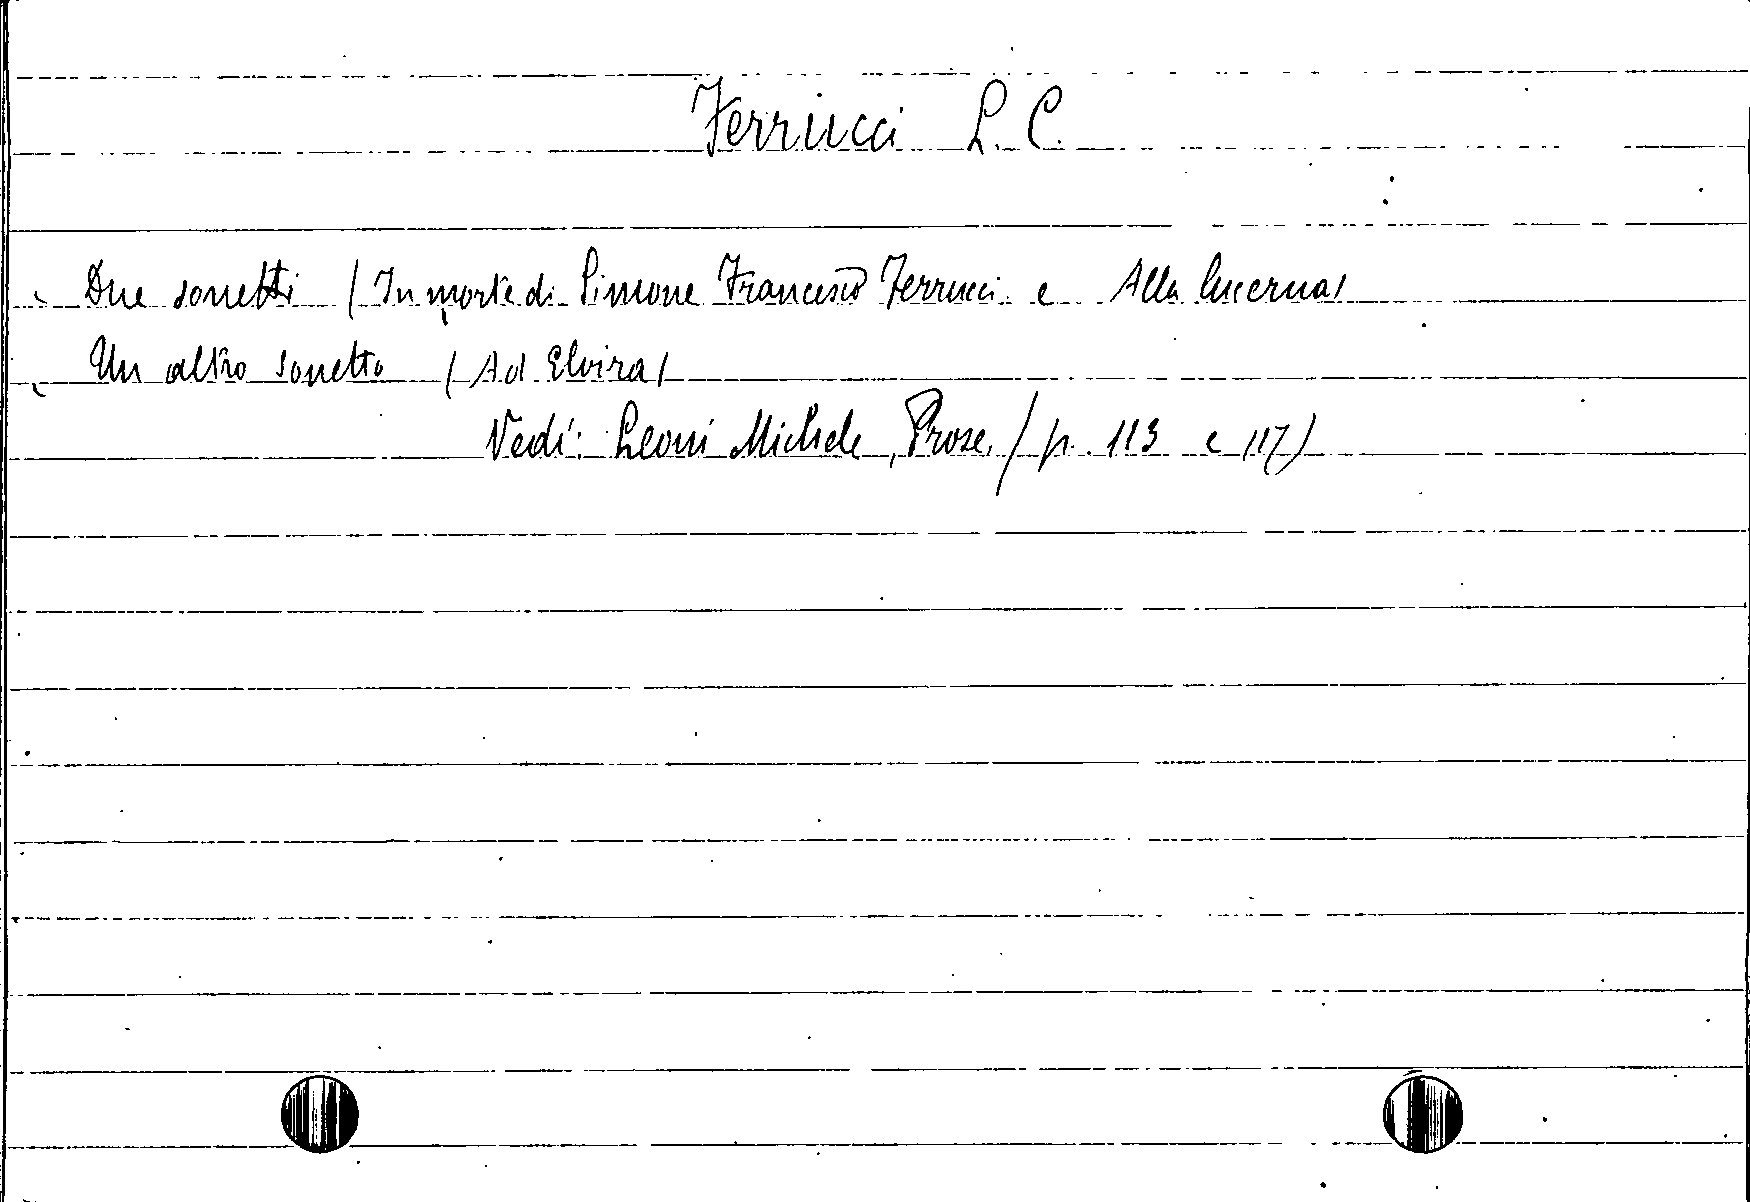 Ferrucci L. C.
Due sonetti (In morte di Simone Francesco Ferrucci e Alla lucerna)
Un altro sonetto (Ad Elvira)
Vedi: Leoni Michele, Prose. (p. 113 e 117)